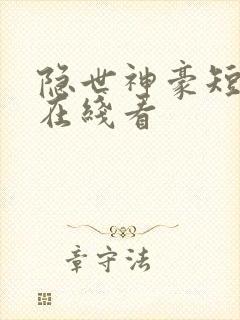 隐世神豪短
在线看
章守法